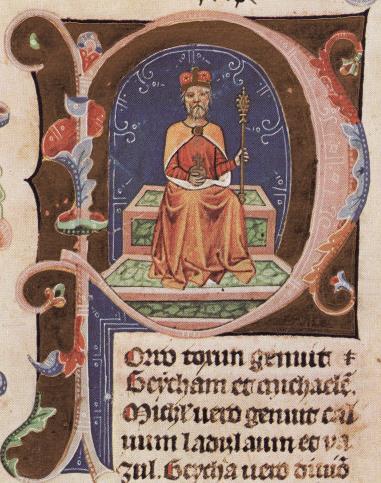 Porro toxun genuit
Geycham et michaelē.
Michl uero genuit cal
uum ladizlaum et va
zul. Geycha uero diuīo